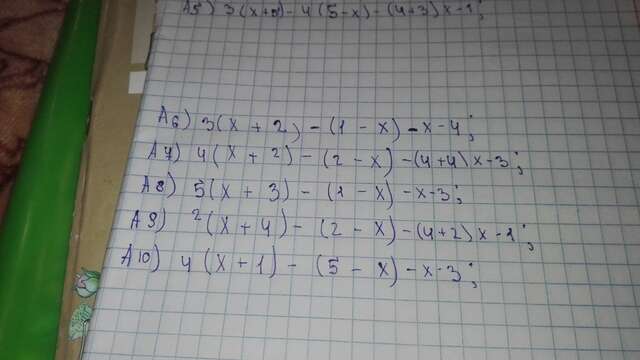 А5) 3(x+8) - 4(5-x) - (4+3)x-1;
А6) 3(x + 2) - (1 - x) - x-4;
А7) 4(x + 2) - (2 - x) - (4+4)x-3;
А8) 5(x + 3) - (1 - x) - x-3;
А9) 2(x + 4) - (2 - x) - (4+2)x-1;
А10) 4(x + 1) - (5 - x) - x-3;